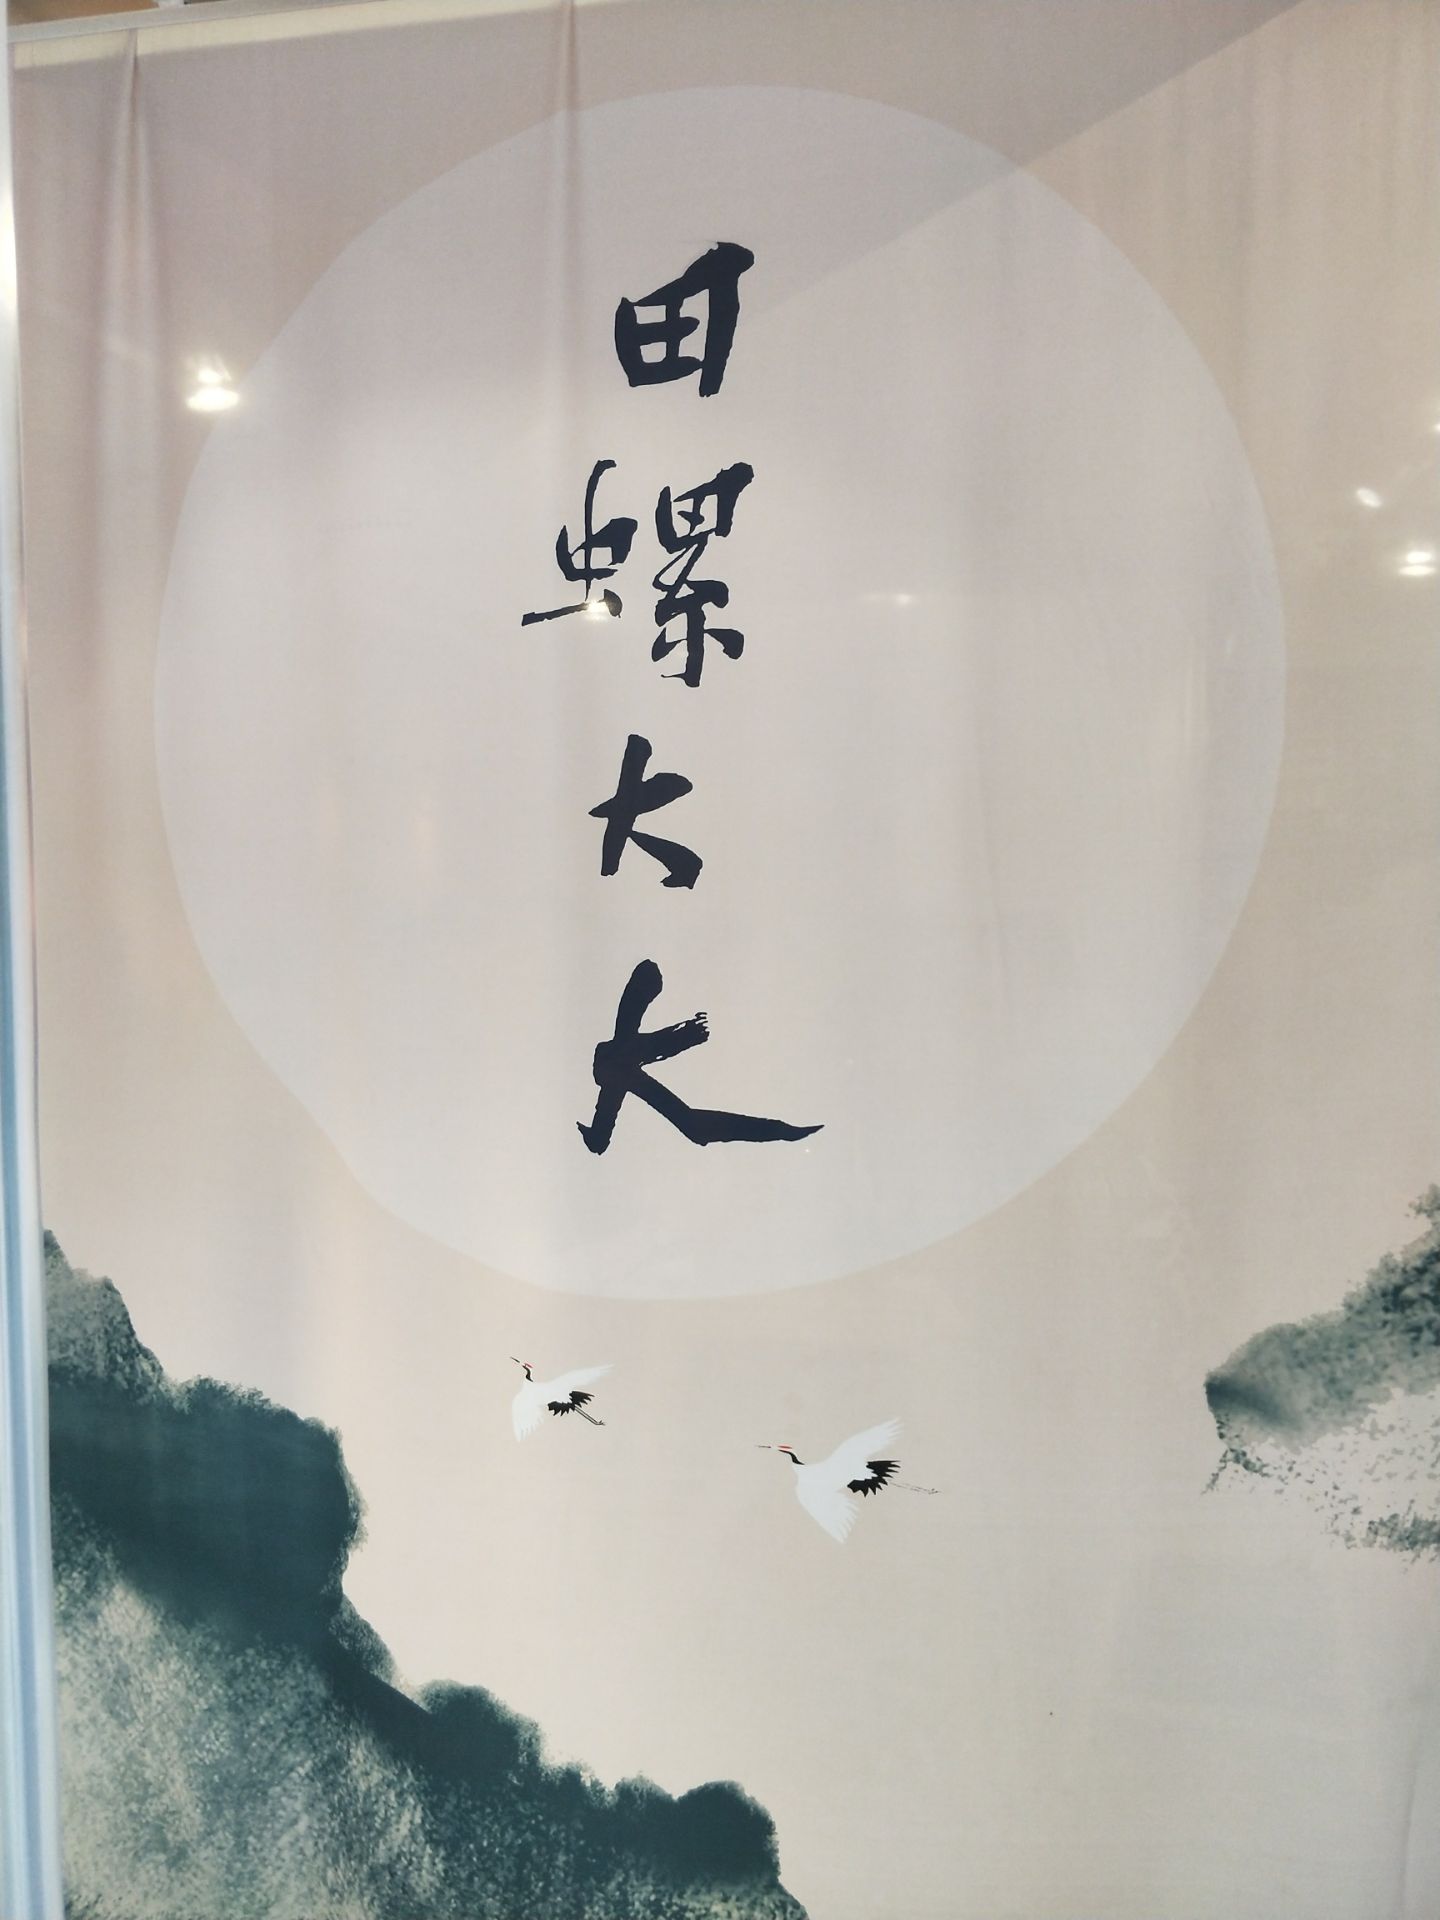 田螺大大